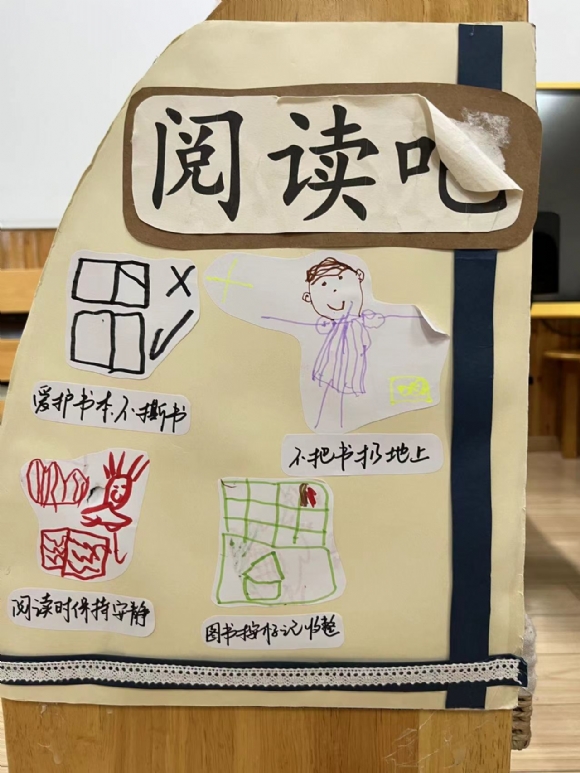 阅读吧
爱护书本不撕书
不把书扔地上
阅读时保持安静
图书按标记收整